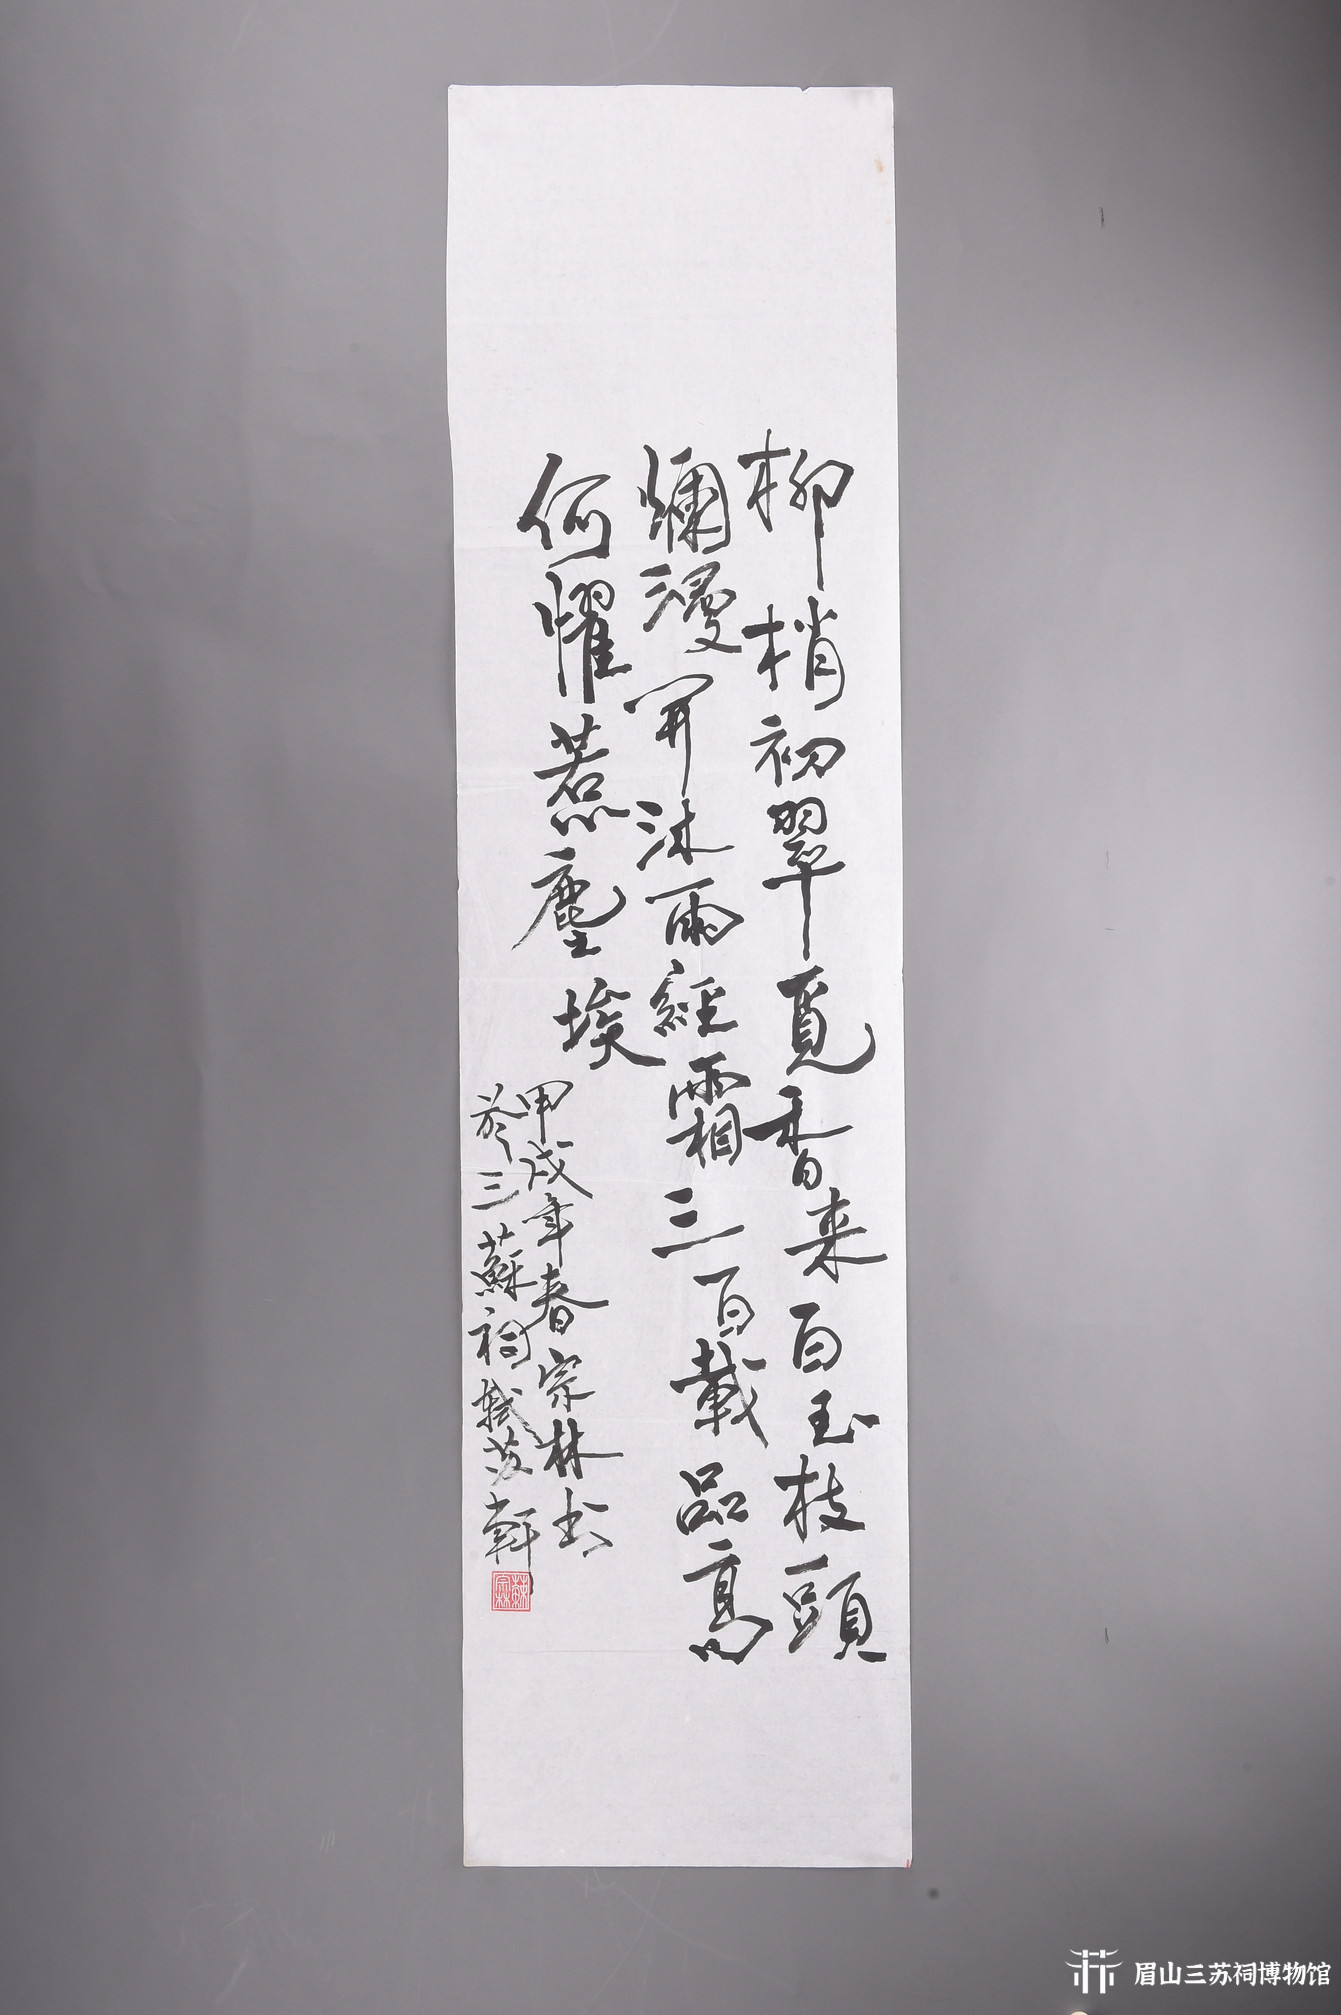 柳梢初翠覓香来白玉枝頭
爛漫开沐雨經霜三百載品高
何懼惹塵埃
甲戌年春宗林书
於三蘇祠軾苏軒
蘇宗林
眉山三苏祠博物馆